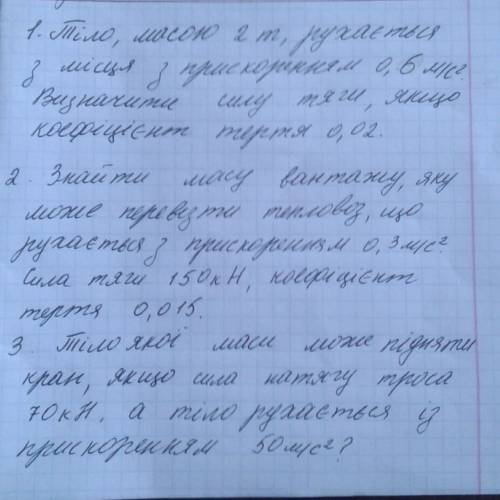 1. Тіло, масою 2 т, рухається
з місця з прискоренням 0,6 м/с².
Визначити силу тяги, якщо
коефіцієнт тертя 0,02.
2. Знайти масу вантажу, яку
може перевезти тепловоз, що
рухається з прискоренням 0,3 м/с².
Сила тяги 150 кН, коефіцієнт
тертя 0,015.
3 Тіло якої маси може підняти
кран, якщо сила натягу троса
70 кН, а тіло рухається із
прискоренням 50 м/с²?